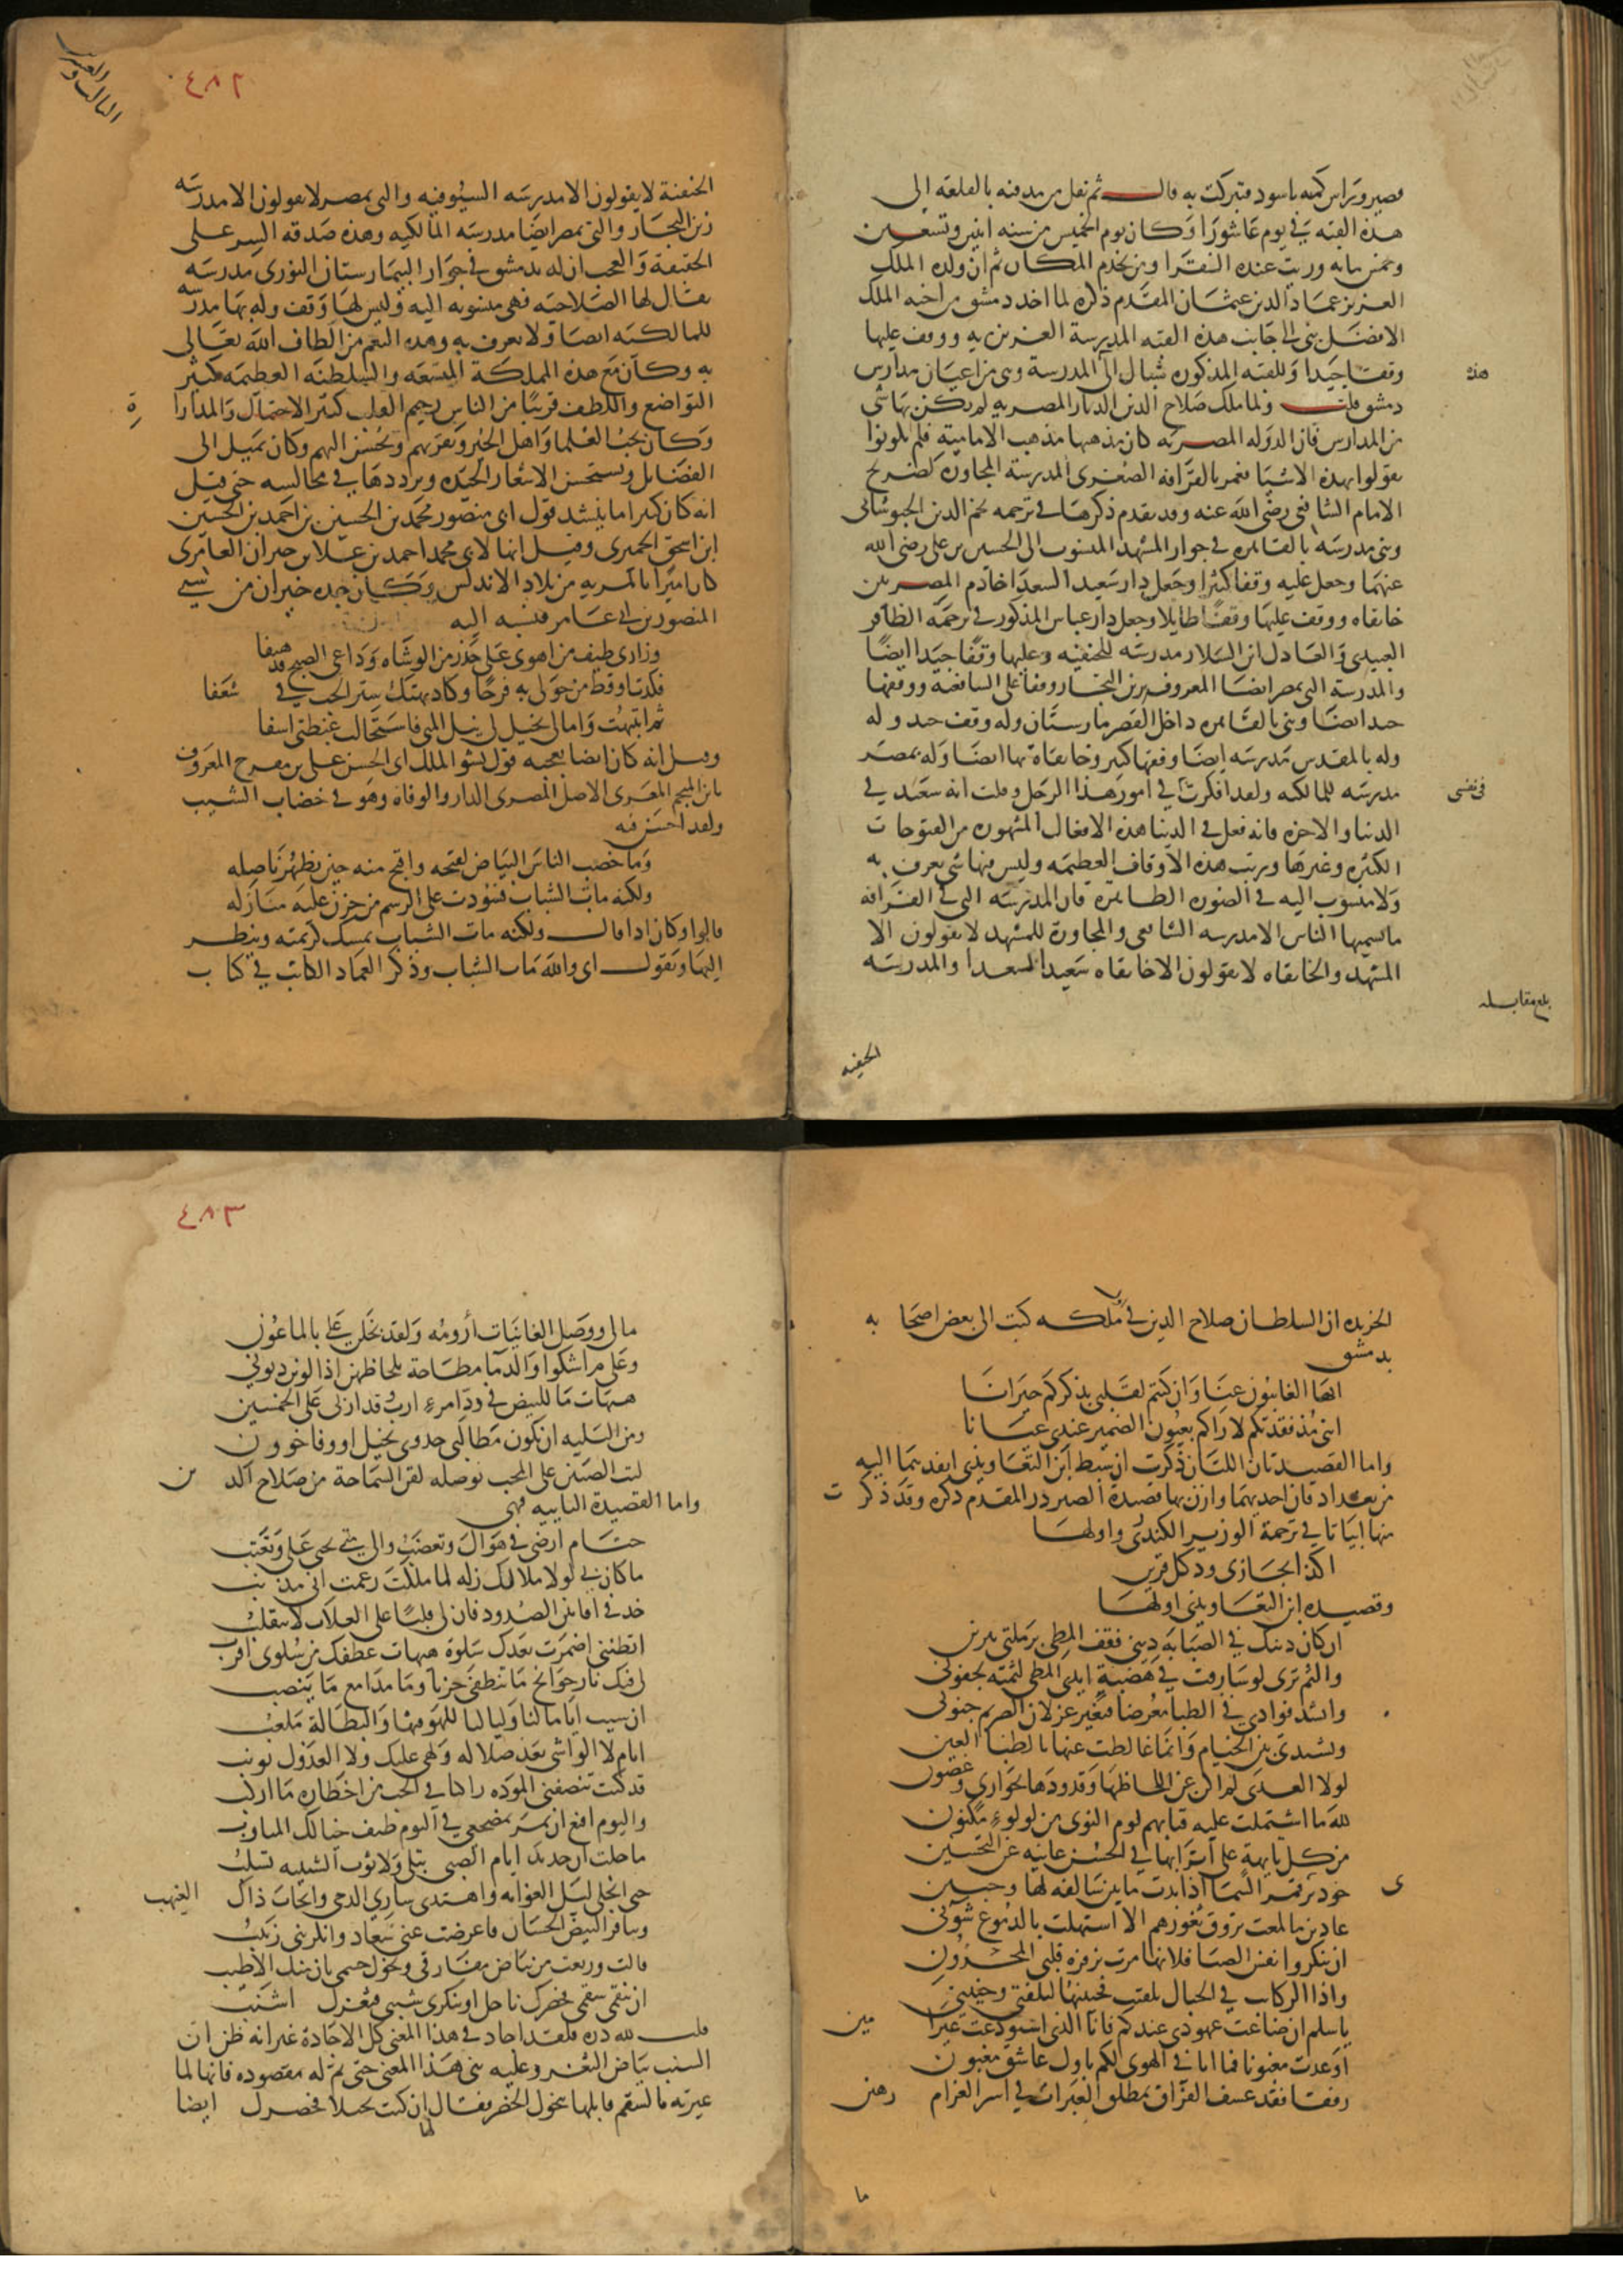 قصير وراس كمه باسود فتبركت به قالـــــ ثم نقل من مدفنه بالقلعه الى
هذه القبه في يوم عاشورا وكان يوم الخميس من سنه اثنين وتسعين
وخمس مايه ورتب عنده القرا ومن يخدم المكان ثم ان ولده الملك
العزيز عماد الدين عثمان المقدم ذكره لما اخذ دمشق من اخيه الملك
الافضل بنى الى جانب هذه القبه المدرسة العزيزيه ووقف عليها
وقفا جيدا وللقبه المذكوره شباك الى المدرسة وهى من اعيان مدارس
هذه
دمشق قلتـــــ ولما ملك صلاح الدين الديار المصريه لم يكن بها شى
من المدارس فان الدوله المصريه كان مذهبها مذهب الاماميه فلم يكونوا
يقولوا بهذه الاشيا فعمر بالقرافه الصغرى المدرسة المجاوره لضريح
الامام الشافعى رضى الله عنه وقد تقدم ذكرها في ترجمه نجم الدين الخبوشانى
وبنى مدرسة بالقاهره في جوار المشهد المنسوب الى الحسين بن على رضى الله
عنهما وجعل عليه وقفا كثيرا وجعل دار سعيد السعدا خادم المصريين
خانقاه ووقف عليها وقفا طايلا وجعل دار عباس المذكور في ترجمة الظافر
العبيدى والعادل ابن السلار مدرسه للحنفيه وعليها وقفا جيدا ايضا
والمدرسة التى بمصر ايضا المعروفه بزين التجار وقفا على الشافعية ووقفها
جيد ايضا وبنى بالقاهره داخل القصر مارستان وله وقف جيد وله
وله بالمقدس مدرسه ايضا وقفها كبير وخانقاة بها ايضا وله بمصر
مدرسه للمالكيه ولقد افكرت في امور هذا الرجل وقلت انه سعد في
فى نفسى
الدنيا والاخره فانه فعل في الدنيا هذه الافعال المشهوره من الفتوحات
الكثيره وغيرها ورتب هذه الاوقاف العظيمه وليس فيها شى يعرف به
ولا منسوب اليه في الصوره الظاهره فان المدرسه التى في القرافه
ما يسميها الناس الا مدرسه الشافعى والمجاورة للمشهد لا يقولون الا
المشهد والخانقاه لا يقولون الا خانقاه سعيد السعدا والمدرسه
بلغ مقابله
الحنفيه
الثالث والعشر
٤٨٢
الحنفية لا يقولون الا مدرسه السيوفيه والتى بمصر لا يقولون الا مدرسه
زين التجار والتى بمصر ايضا مدرسه المالكيه وهذه صدقه السر على
الحقيقة والعجب ان له بدمشق في جوار البيمارستان النورى مدرسه
يقال لها الصلاحيه فهى منسوبه اليه وليس لها وقف وله بها مدرسه
للمالكيه ايضا ولا يعرف به وهذه النعم من الطاف الله تعالى
به وكان مع هذه المملكة المتسعه والسلطنه العظيمه كثير
التواضع واللطف قريبا من الناس رحيم القلب كثير الاحتمال والمدارا
ة
وكان يحب العلما واهل الخير ويقربهم ويحسن اليهم وكان يميل الى
الفضايل ويستحسن الاشعار الجيده ويرددها في مجالسه حتى قيل
انه كان كثيرا ما ينشد قول ابى منصور محمد بن الحسين بن احمد بن الحسين
ابن اسحق الحميرى وقيل انها لابى محمد احمد بن علا بن خيران العامرى
كان اميرا بالمريه من بلاد الاندلس وكان جده خيران من سبى
المنصور بن ابى عامر فنسب اليه
وزارنى طيف من اهوى على حذر من الوشاه وداعى الصبح قد هتفا
فكدت اوقظ من حولى به فرحا وكاد يهتك ستر الحب بى شغفا
ثم انتبهت وامالى تخيل لى نيل المنى فاستحالت غبطتى اسفا
وقيل انه كان ايضا يعجبه قول نشو الملك ابى الحسن على بن مفرح المعروف
بابن المنجم المعرى الاصل المصرى الدار والوفاه وهو في خضاب الشيب
ولقد احسن فيه
وما خضب الناس البياض لقبحه واقبح منه حين يظهر ناصله
ولكنه مات الشباب فسودت على الرسم من حزن عليه منازله
قالوا وكان اذا قالــــ ولكنه مات الشباب يمسك كريمته وينظر
اليها ويقولــــ اى والله مات الشباب وذكر العماد الكاتب في كتاب
الخريده ان السلطان صلاح الدين في ملكه كتب الى بعض اصحابه
بدمشق
ايها الغايبون عنا وان كنتم لقلبى بذكركم جيرانا
اننى مذ فقدتكم لاراكم بعيون الضمير عندى عيانا
واما القصيدتان اللتان ذكرت ان سبط ابن التعاويذى انفذهما اليه
من بغداد فان احديهما وازن بها قصيدة الصردر المقدم ذكره وقد ذكرت
منها ابياتا في ترجمة الوزير الكندرى واولها
اكذا يجازى ود كل قرين
وقصيده ابن التعاويذى اولها
ان كان دينك في الصبابة دينى فقف المطى برملتى يبرين
والثم ثرى لو شارفت بى هضبة ايدى المطى لثمته بجفونى
وانشد فوادى في الظبا معرضا فبغير غزلان الصريم جنونى
ونشيدتى بين الخيام وانما غالطت عنها بالظبا العين
لولا العدى لم اكن عن الحاظها وقدودها بجوارى وغصون
لله ما اشتملت عليه قبابهم يوم النوى من لولو مكنون
من كل تايهة على اترابها في الحسن غانيه عن التحسين
خود ترى قمر السما اذا بدت ما بين سالفة لها وجبين
ى
غادين ما لمعت بروق ثغورهم الا استهلت بالدموع شونى
ان تنكروا نفس الصبا فلانها مرت بزفرة قلبى المحزون
واذا الركاب في الجبال تلفتت فحنينها لتلفتى وحنينى
يا سلم ان ضاعت عهودى عندكم فانا الذى استودعت غير امين
او عدت مغبونا فما انا في الهوى لكم باول عاشق مغبون
رفقا فقد عسف الفراق بمطلق العبرات في اسر الغرام رهين
ما
٤٨٣
مالى ووصل الغانيات أرومه ولقد بخلن على بالماعون
وعلى م اشكوا والدما مطاحة بلحاظهن اذا لوين ديونى
هيهات ما للبيض في ود امرء ارب وقد اربى على الخمسين
ومن البليه ان تكون مطالبى جدوى بخيل او وفا خوون
ليت الضنين على المحب بوصله لقن السماحة من صلاح الدين
واما القصيدة الثانيه فهى
حتام ارضى في هواك وتغضب والى متى تجنى على وتعتب
ما كان لى لولا ملالك زله لما مللت زعمت انى مذنب
خذ في افانين الصدود فان لى قلبا على العلات لا يتقلب
اتظننى اضمرت بعدك سلوة هيهات عطفك من سلوى اقرب
لى فيك نار جوانح ما تنطفى حزنا وما مدامع ما ينضب
انسيت اياما لنا ولياليا للهو فيها والبطالة ملعب
ايام لا الواشى يعد ضلاله ولهى عليك ولا العذول يونب
قد كنت تنصفنى الموده راكبا في الحب من اخطاره ما اركب
واليوم اقنع ان يمر بمضجعى في النوم طيف خيالك المتاوب
ما خلت ان جديد ايام الصبى يبلى ولا ثوب الشبيبه يسلب
حتى انجلى ليل الغوايه واهتدى سارى الدجى وانجاب ذاك الغيهب
وتنافر البيض الحسان فاعرضت عنى سعاد وانكرتنى زينب
قالت وريعت من بياض مفارقى ونحول جسمى بان منك الاطيب
ان تنقمى سقمى فخصرك ناحل او تنكرى شيبى فثغرك اشنب
قلتــــ لله دره فلقد اجاد في هذا المعنى كل الاجادة غير انه ظن ان
الشنب بياض الثغر وعليه بنى هذا المعنى حتى تم له مقصوده فانها لما
عيرته بالسقم قابلها بنحول الخصر فقال لها ان كنت نحيلا فخصرك ايضا